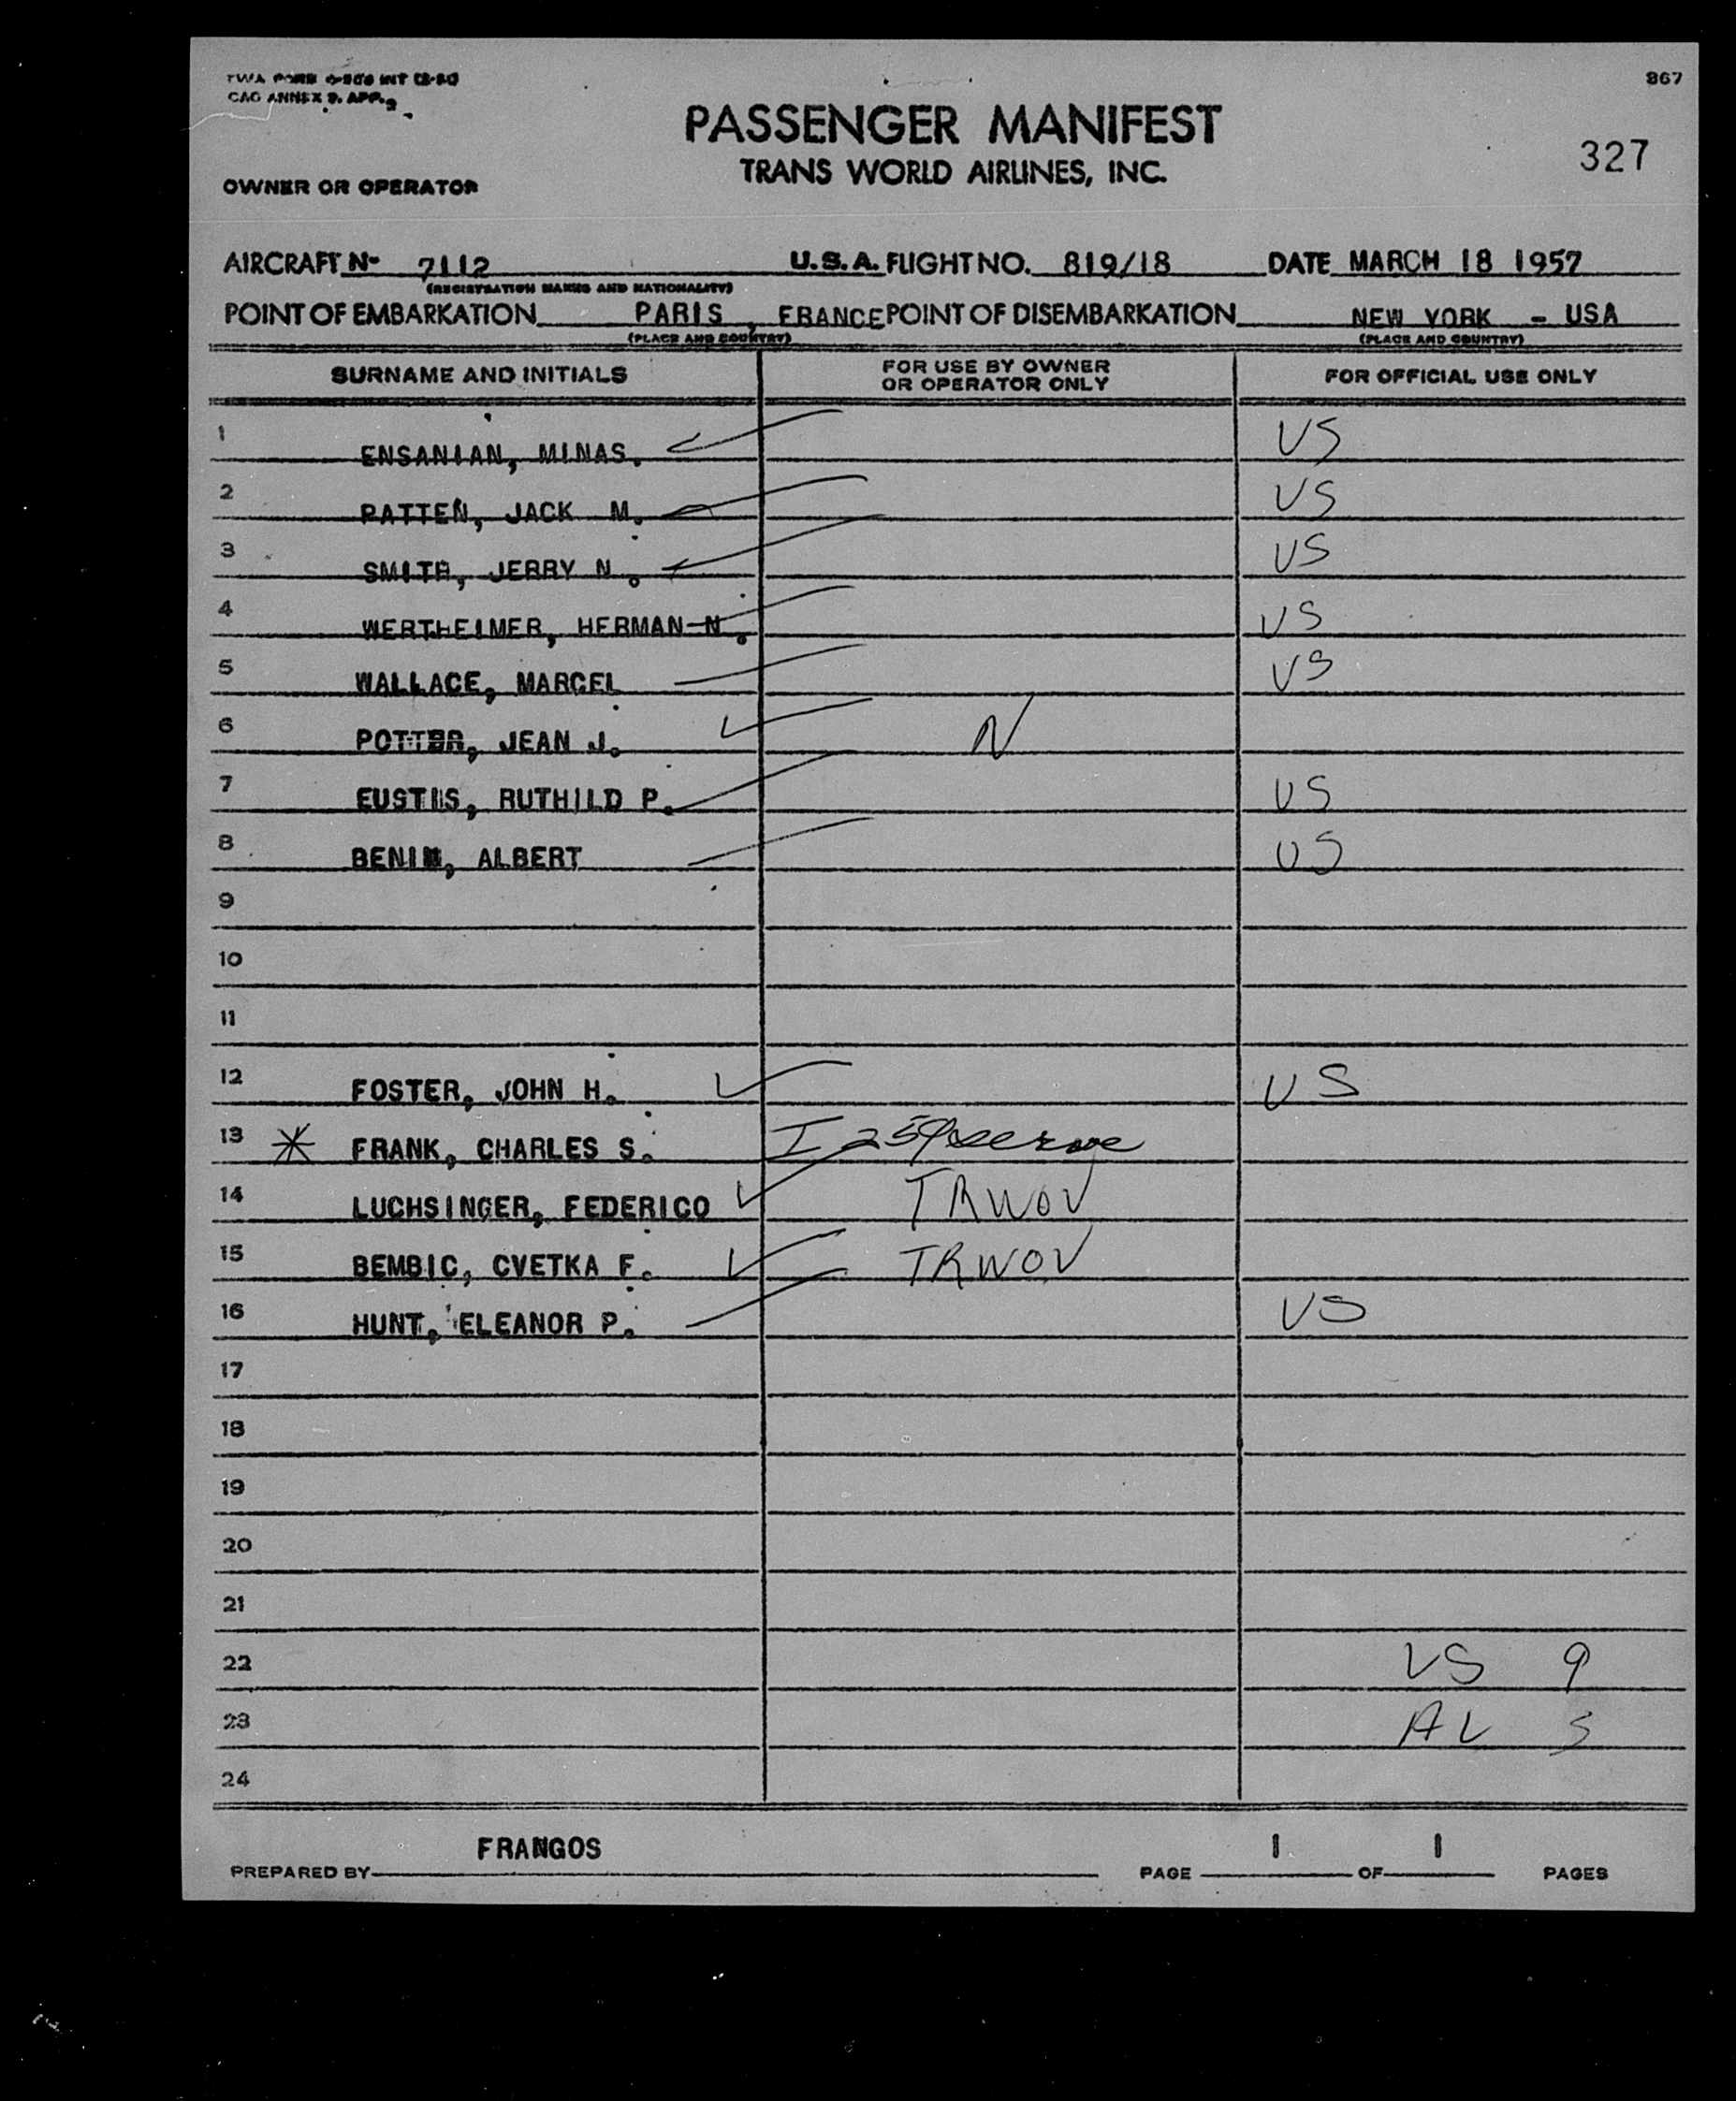 TWA FORM INT
867
ICAO ANNEX 9, APP. 2
PASSENGER MANIFEST
327
TRANS WORLD AIRLINES, INC.
OWNER OR OPERATOR
AIRCRAFT Nº 7112 U.S.A. FLIGHT NO. 819/18 DATE MARCH 18 1957
(REGISTRATION MARKS AND NATIONALITY)
POINT OF EMBARKATION PARIS, FRANCE POINT OF DISEMBARKATION NEW YORK - USA
(PLACE AND COUNTRY) (PLACE AND COUNTRY)
SURNAME AND INITIALS FOR USE BY OWNER OR OPERATOR ONLY FOR OFFICIAL USE ONLY
1 ENSANIAN, MINAS. US
2 PATTEN, JACK M. US
3 SMITH, JERRY N. US
4 WERTHEIMER, HERMAN N. US
5 WALLACE, MARCEL US
6 POTTER, JEAN J. N
7 EUSTIS, RUTHILD P. US
8 BENIN, ALBERT US
9
10
11
12 FOSTER, JOHN H. US
13 * FRANK, CHARLES S. I
14 LUCHSINGER, FEDERICO TRWOV
15 BEMBIC, CVETKA F. TRWOV
16 HUNT, ELEANOR P. US
17
18
19
20
21
22 US 9
23 AL 5
24
FRANGOS
PREPARED BY PAGE 1 OF 1 PAGES